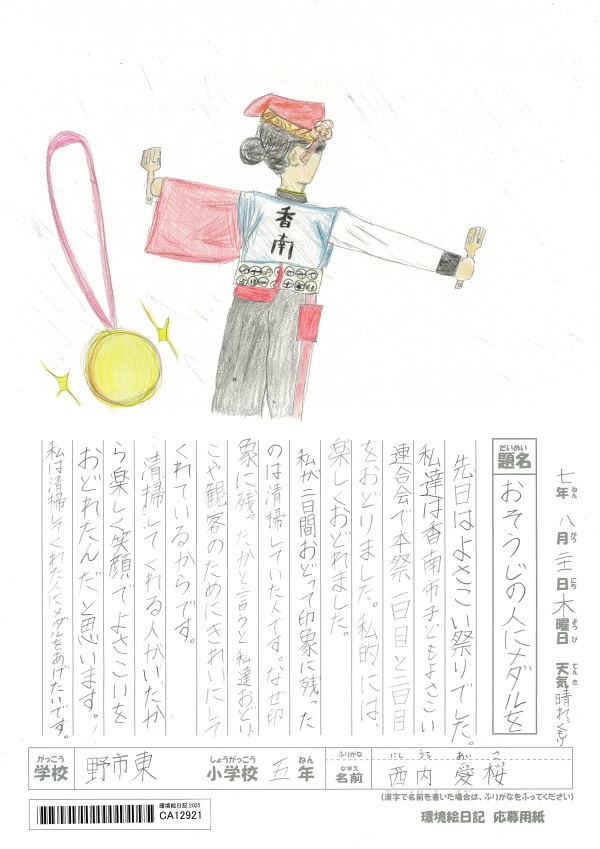 香南
七年 八月 二十一日 木曜日 天気 晴れくもり
ねん がつ にち ようび てんき
だいめい
題名 おそうじの人にメダルを
先日はよさこい祭りでした。
私達は香南市子どもよさこい
連合会で本祭一日目と二日目
をおどりました。私的には、
楽しくおどれました。
私が二日間おどって印象に残った
のは清掃していた人です。なぜ印
象に残ったかと言うと私達おどり
こや観客のためにきれいにして
くれているからです。
清掃してくれる人がいたか
ら楽しく笑顔でよさこいを
おどれたんだと思います。
私は清掃してくれた人にメダルをあげたいです。
がっこう しょうがっこう ねん ふりがな にしうち あいさ
学校 野市東 小学校 五年 なまえ 名前 西内 愛桜
(漢字で名前を書いた場合は、ふりがなをふってください)
環境絵日記 2025
CA12921
環境絵日記 応募用紙